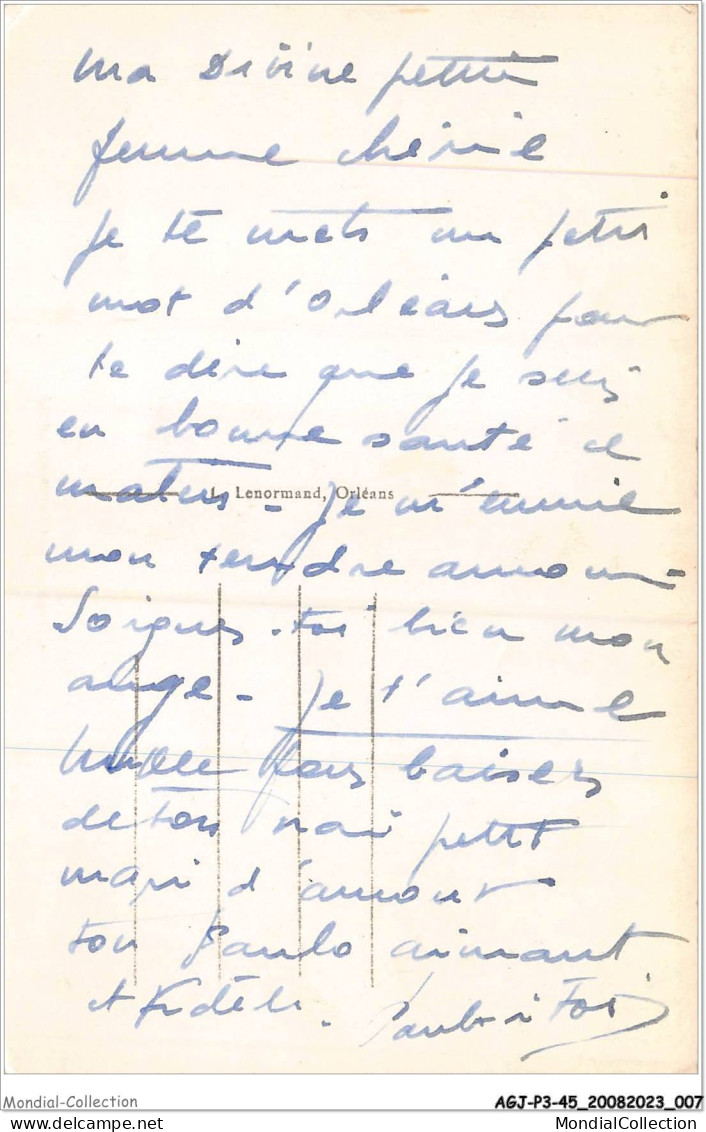 Ma Divine petite
femme chérie
je te mets un petit
mot d'Orléans pour
te dire que je suis
en bonne santé ce
matin - je m'ennuie
L. Lenormand, Orléans
mon tendre amour -
Soignes-toi bien mon
ange - je t'aime
mille fois baisers
de ton vrai petit
mari d'amour
ton Paulo aimant
et fidèle. Paulo à Toi
Mondial-Collection
AGJ-P3-45_20082023_007
MondialCollection